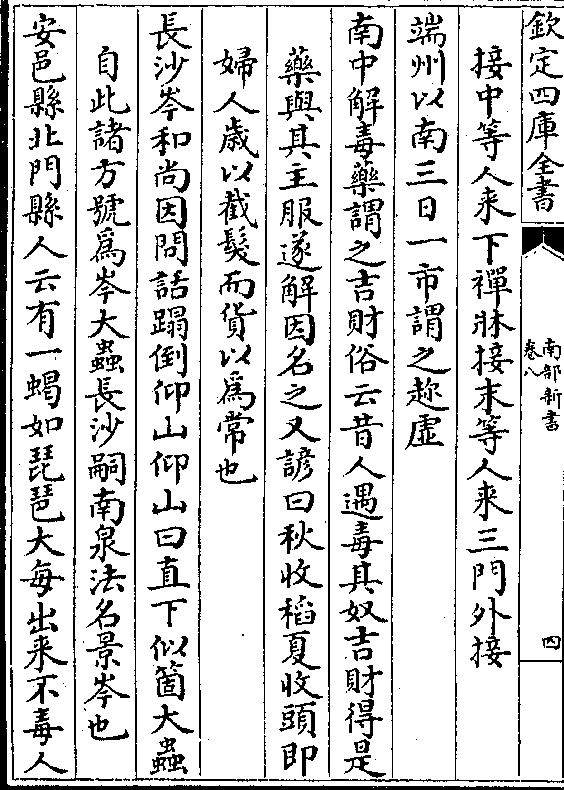 欽定四庫全書
南部新書
卷八
四
接中等人来下禪牀接末等人来三門外接
端州以南三日一市謂之趂虛
南中解毒藥謂之吉財俗云昔人遇毒其奴吉財得是
藥與其主服遂解因名之又諺曰秋收稻夏收頭即
婦人歳以截髮而貨以爲常也
長沙岑和尚因問話蹋倒仰山仰山曰直下似箇大蟲
自此諸方號爲岑大蟲長沙嗣南泉法名景岑也
安邑縣北門縣人云有一蝎如琵琶大每出来不毒人